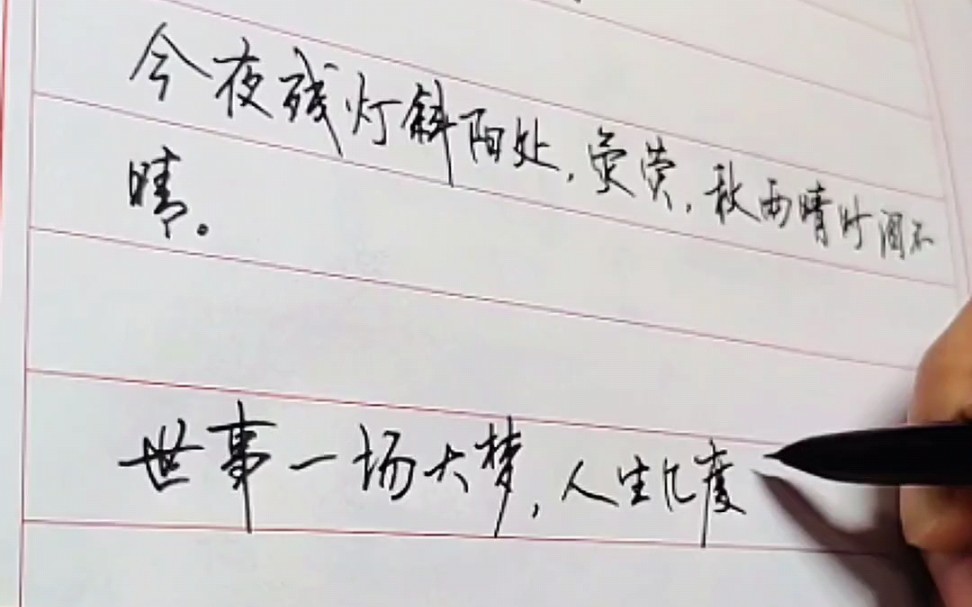 今夜残灯斜阳处,荧荧,秋雨晴时泪不
晴。
世事一场大梦,人生几度